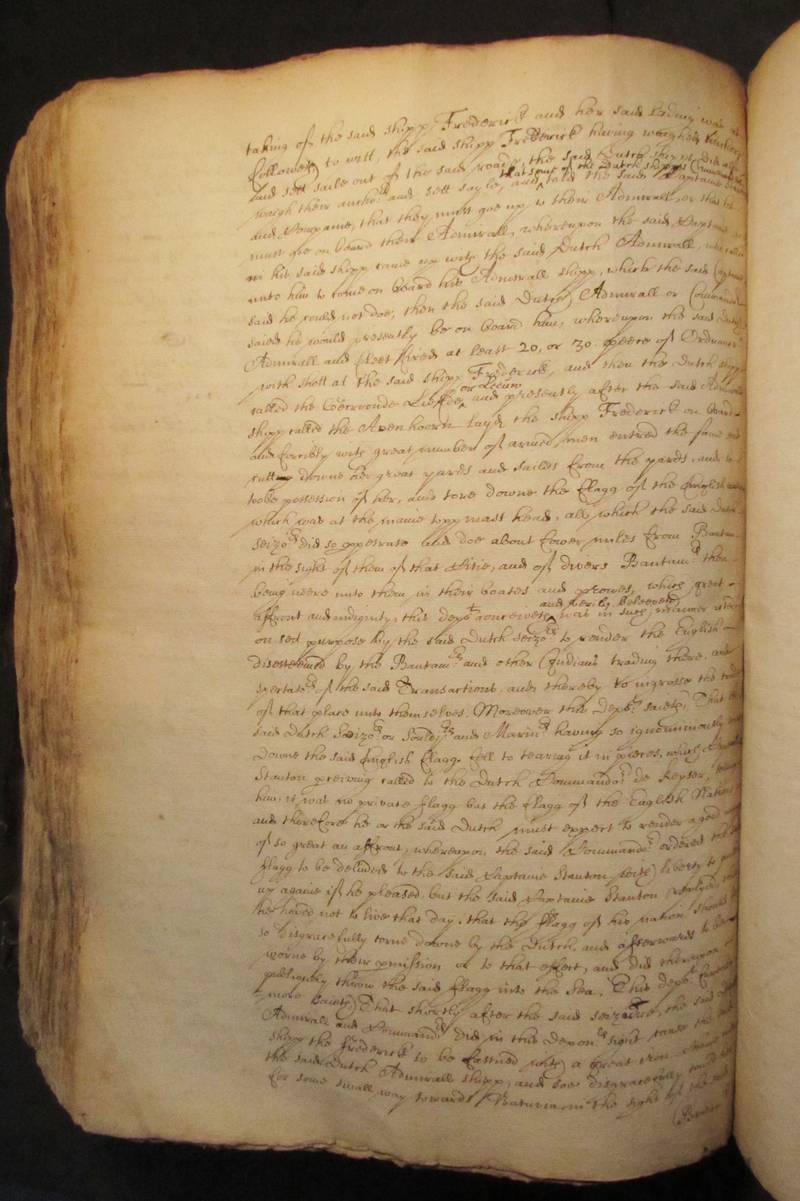 taking of the said shipp Frederick and her said lading was as
followeth) to witt, the said shipp Frederick having weighed
and sett saile out of the said roade, the said Dutch shipps did also
waigh their anchors and sett sayle, and told the said Captaine
that some of the Dutch shipps
and Companie, that they must goe up to their Admirall, or that he
must goe on board their Admirall, whereupon the said Captaine
in his said shipp came up with the said Dutch Admirall, who called
unto him to come on board his Admirall shipp, which the said Captaine
said he could not doe, then the said Dutch Admirall or Commander
saied he would presently be on board him, whereupon the said Dutch
Admirall and fleet fired at least 20, or 30 peeces of Ordnance
with shott at the said shipp Frederick, and then the Dutch shipp
called the Coervorden Liefde, and presently after the said Admirall
or Leeuw
shipp called the Avenhoorn layd the shipp Frederick on board
and forcibly with great number of armed men entred the same and
cutting downe her great yards and sailes from the yards, and
tooke possession of her, and tore downe the Flagg of the English
which was at the maine topp mast head, all which the said Dutch
seizors did so perpetrate and doe about fower miles from Bantam
in the sight of them of that Citie, and of divers Bantamrs then
being neere unto them in their boates and prowes, which great
affront and indignity, this depot conceiveth was in such manner
and verily beleeveth
on set purpose by the said Dutch seizors to render the English
disesteemed by the Bantamrs and other Indians trading there, and
spectators of the said Transactions, and thereby to ingrosse the trade
of that place unto themselves. Moreover this Depot saieth, That the
said Dutch Seizors or Souldrs and Marinrs having so ignominiously
downe the said English Flagg, fell to tearing it in pieces, which Captaine
Stanton perceiving called to the Dutch Commandor de Keyser,
him, it was no private flagg but the Flagg of the English Nation
and therefore he or the said Dutch must expect to render a good
of so great an affront, whereupon the said Commandr ordered the
flagg to be delivered to the said Captaine Stanton with liberty to
up againe if he pleased, but the said Captaine Stanton replyed
he hoped not to live that day, that the flagg of his nation should
so disgracefully torne downe by the Dutch, and afterwards to be
worne by their permission or to that effect, and did thereupon
publiquely throw the said flagg into the Sea. This depot
more saieth) That shortly after the said seizure, the said
Admirall and Commandr did in this Deponts sight cause the said
shipp the Frederick to be fastned with a great
the said Dutch Admirall shipp, and soe disgracefully
for some small way towards Batavia in the sight of the said